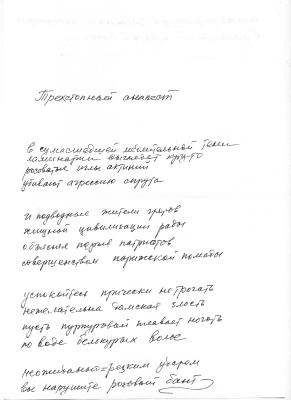 Трехстопный анапест
в сумасшедшей мочительной тени
ламинарии выглядят круто
розоватые иглы актиний
убивают агрессию спрута
и подводные жители гротов
хищной цивилизации рабы
обаяния порыв патриотов
совершенством парижской помады
успокойтесь прически не трогать
нежелательна дамская злость
пусть пурпуровый плавает ноготь
по воде белокурых волос
неожиданно-резким ударом
вы нарушите розовый бант